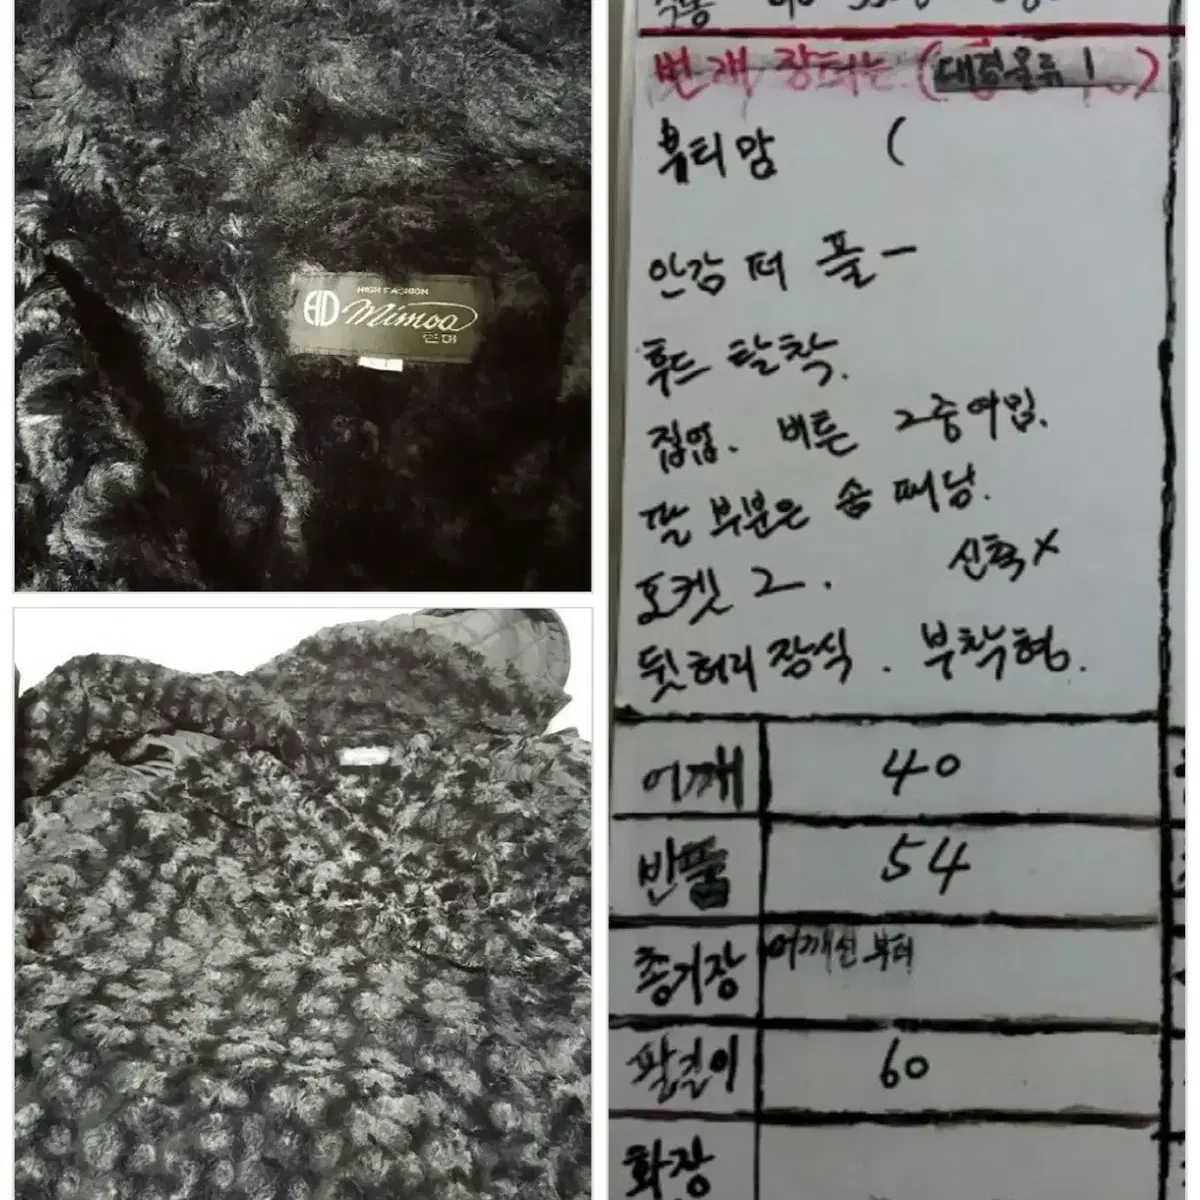 HIGH FASHION
HD mimoa
번개 장터는 (대검올류!)
뷰티맘 (
안감 퍼 플ㅡ
후드 탈착.
집업. 버튼 2중여밈.
팔 부분은 솜 패딩.
포켓 2. 신축X
뒷허리 장식. 부착형.
어깨 40
반품 54
총기장 어깨선부터
팔길이 60
화장